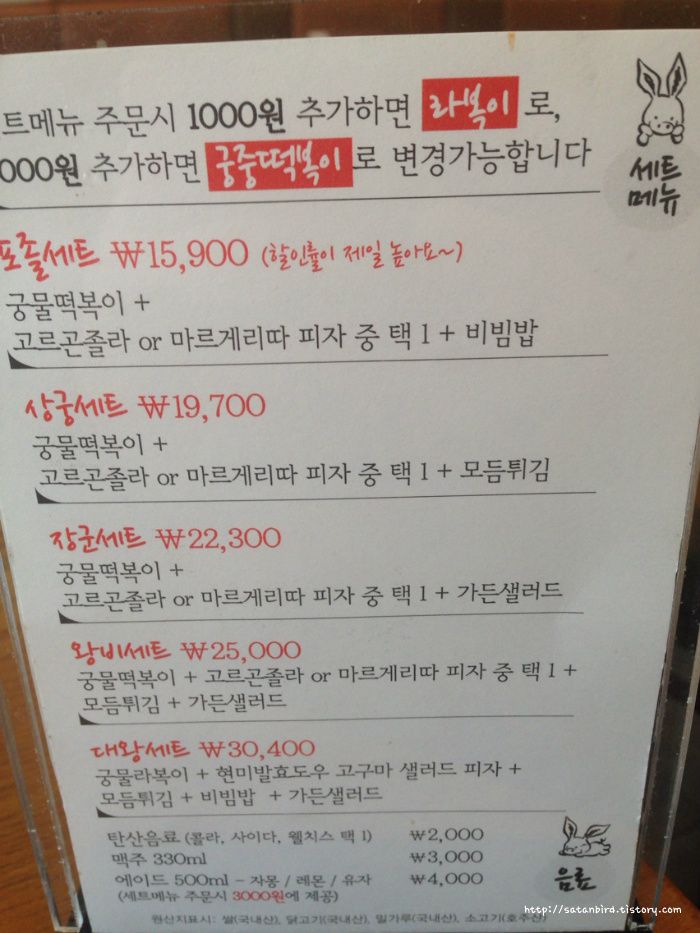 트메뉴 주문시 1000원 추가하면 라볶이 로,
000원 추가하면 궁중떡볶이 로 변경가능합니다
세트
메뉴
포졸세트 ₩15,900 (할인률이 제일 높아요~)
궁물떡볶이 +
고르곤졸라 or 마르게리따 피자 중 택 1 + 비빔밥
상궁세트 ₩19,700
궁물떡볶이 +
고르곤졸라 or 마르게리따 피자 중 택 1 + 모듬튀김
장군세트 ₩22,300
궁물떡볶이 +
고르곤졸라 or 마르게리따 피자 중 택 1 + 가든샐러드
왕비세트 ₩25,000
궁물떡볶이 + 고르곤졸라 or 마르게리따 피자 중 택 1 +
모듬튀김 + 가든샐러드
대왕세트 ₩30,400
궁물라볶이 + 현미발효도우 고구마 샐러드 피자 +
모듬튀김 + 비빔밥 + 가든샐러드
탄산음료 (콜라, 사이다, 웰치스 택 1) ₩2,000
맥주 330ml ₩3,000
에이드 500ml - 자몽 / 레몬 / 유자 ₩4,000
(세트메뉴 주문시 3000원에 제공)
음료
원산지표시: 쌀(국내산), 닭고기(국내산), 밀가루(국내산), 소고기(호주산)
http://satanbird.tistory.com